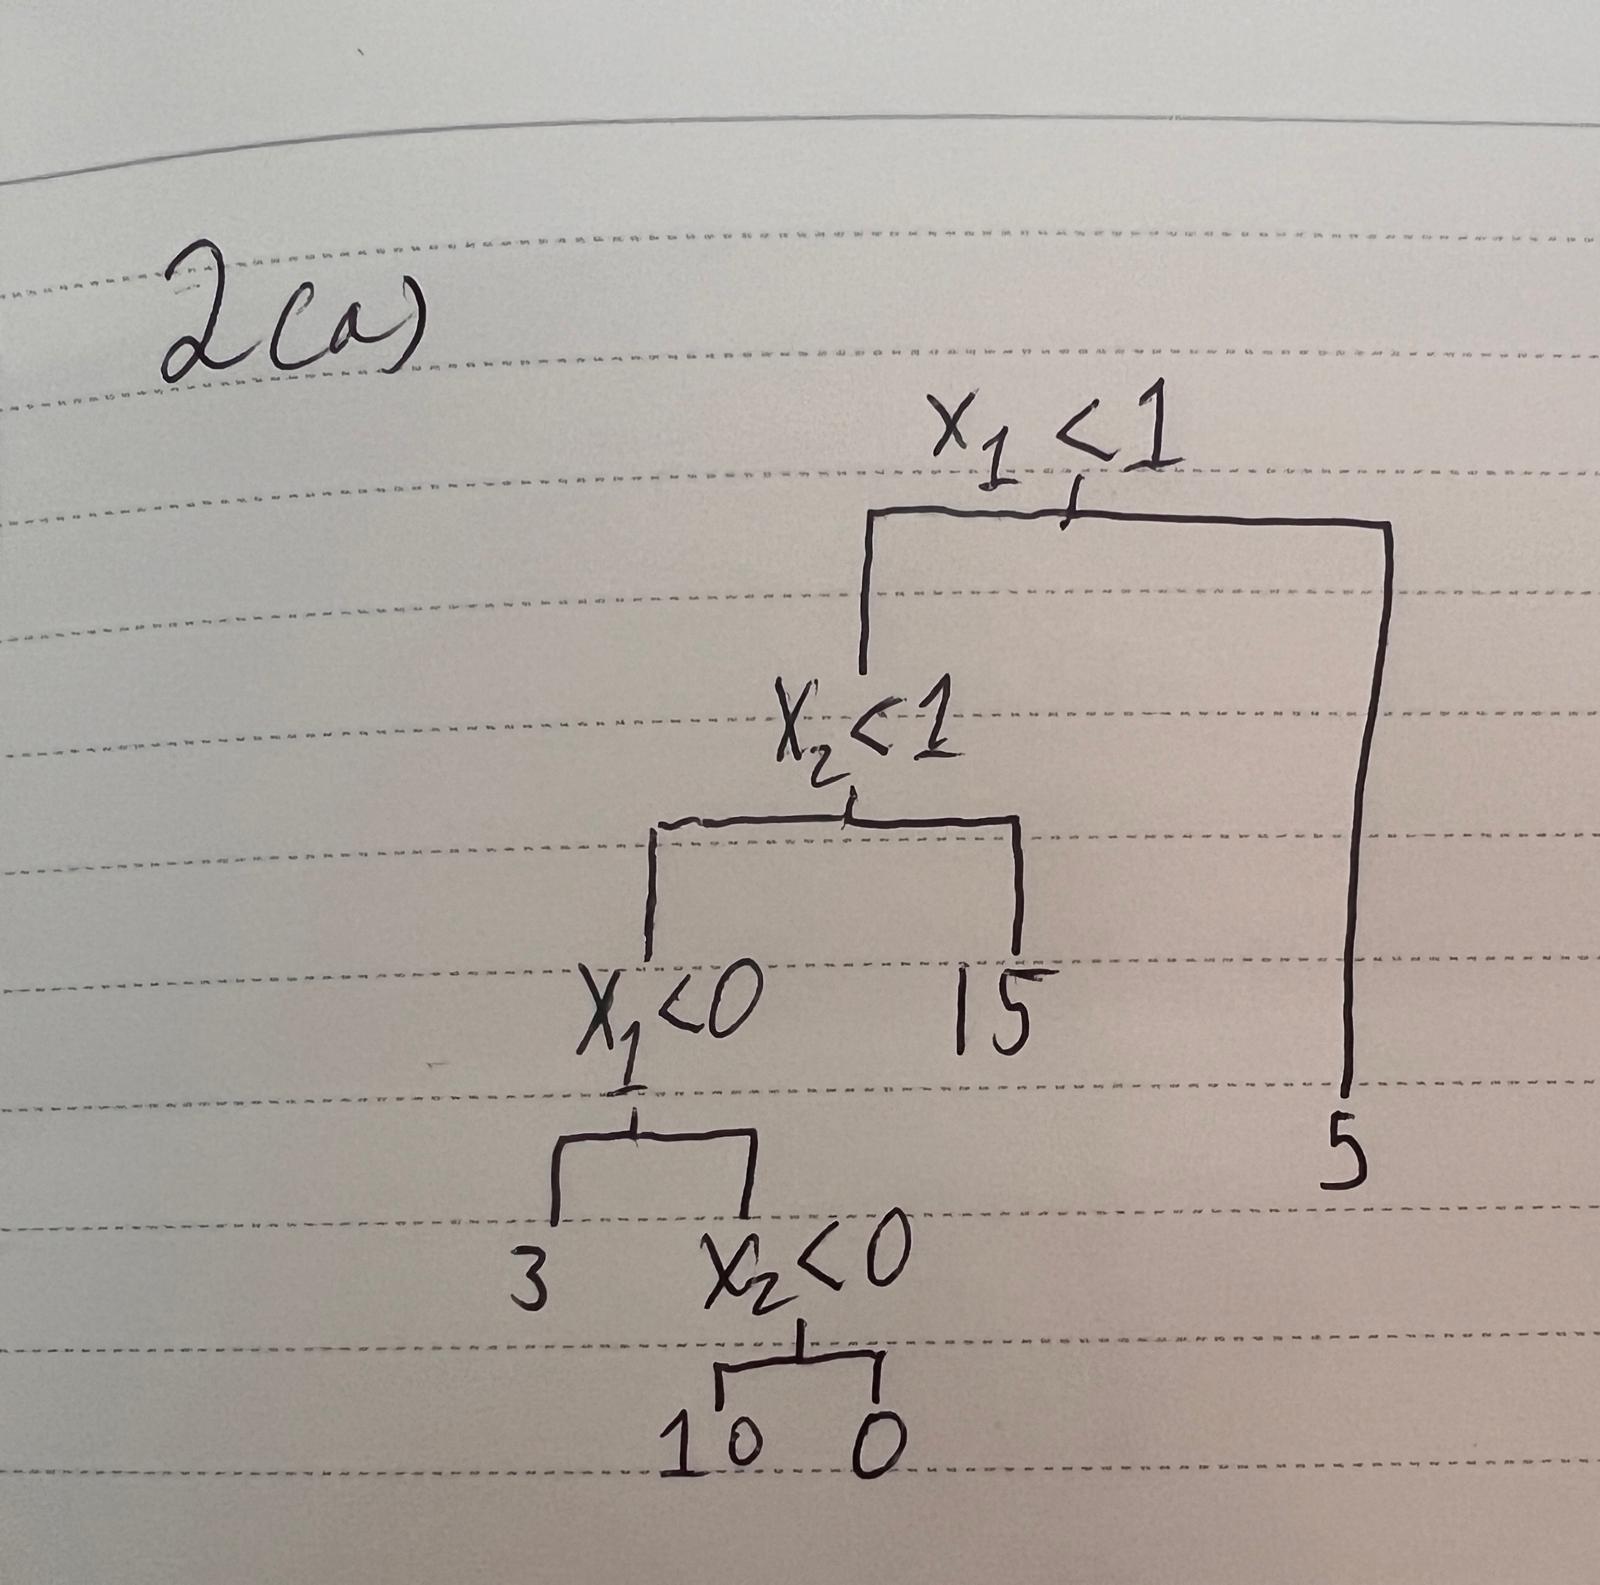 2(a)
x₁ < 1
x₂ < 1
x₁ < 0
15
5
3
x₂ < 0
10
0